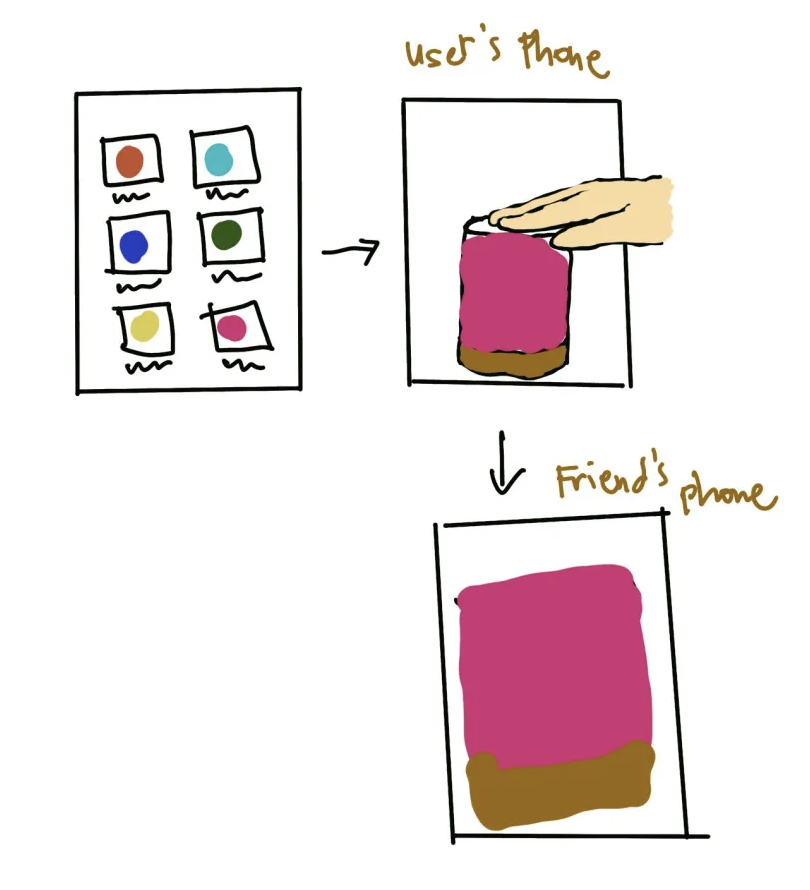 user's Phone
Friend's phone